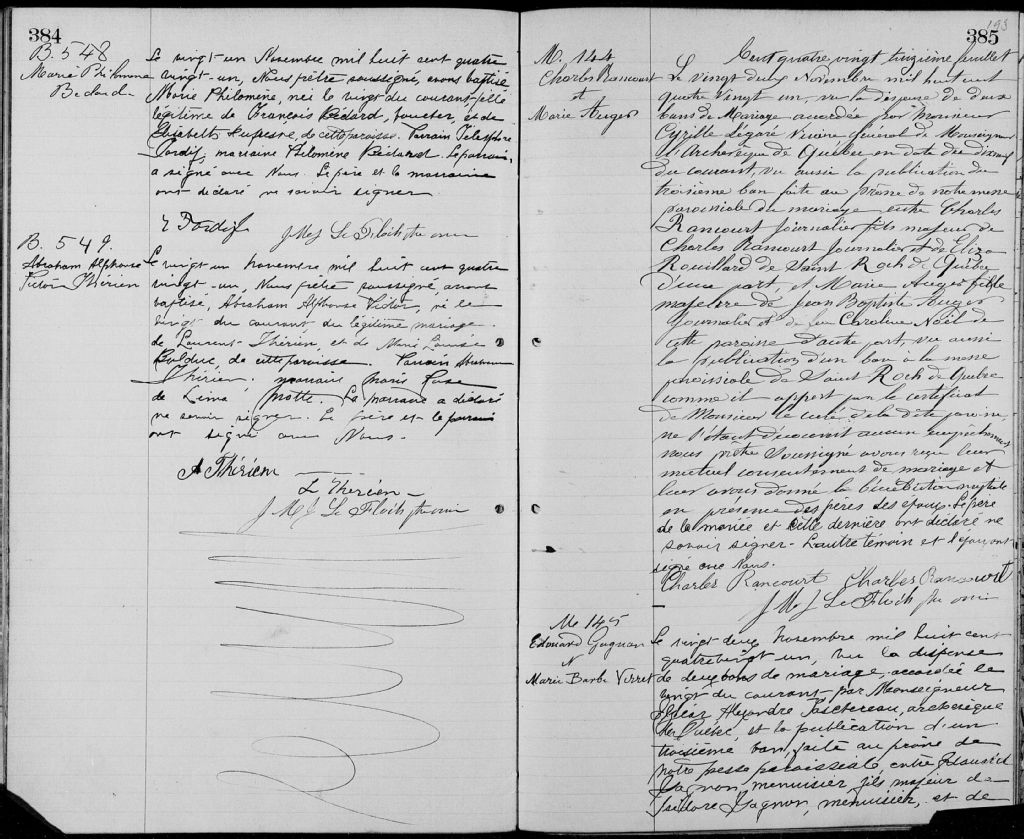 384
B. 548
Marie Philomène
Bedard
Le vingt-un Novembre mil huit cent quatre
vingt-un, Nous prêtre soussigné, avons baptisé
Marie Philomène, née le vingt du courant, fille
légitime de François Bédard, boucher, et de
Elisabeth Dufresne, de cette paroisse. Parrain Télesphore
Tardif, marraine Philomène Bédard. Le parrain,
a signé avec Nous. Le père et la marraine
ont déclaré ne savoir signer.
T Tardif
J M J Le Floch ptre vic
B. 549.
Abraham Alphonse
Victor Thérien
Le vingt-un novembre mil huit cent quatre
vingt-un, Nous prêtre soussigné, avons
baptisé, Abraham Alphonse Victor, né le
vingt du courant du légitime mariage
de Laurent Thérien, et de Marie Louise
Bolduc, de cette paroisse. Parrain Abraham
Thérien, marraine Marie Rose
de Lima Protte. La marraine a déclaré
ne savoir signer. Le père et le parrain
ont signé avec Nous.
A Thérien
L Therien
J M J Le Floch ptre vic
193
385
M. 144
Charles Rancourt
et
Marie Auger
Cent quatre vingt treizième feuillet
Le vingt deux Novembre mil huit cent
quatre vingt un, vu la dispense de deux
bans de Mariage accordée par Monsieur
Cyrille Légaré Vicaire Général de Monseigneur
l'Archevêque de Québec en date du dix neuf
du courant, vu aussi la publication du
troisième ban faite au prône de notre messe
paroissiale du mariage entre Charles
Rancourt Journalier fils majeur de
Charles Rancourt Journalier et de Eliza
Rouillard de Saint Roch de Québec
d'une part, et Marie Auger fille
majeure de Jean Baptiste Auger
Journalier et de feu Caroline Noël de
cette paroisse d'autre part, vu aussi
la publication d'un ban à la messe
paroissiale de Saint Roch de Québec
comme il appert par le certificat
de Monsieur le curé de la dite paroisse,
ne s'étant découvert aucun empêchement
nous prêtre Soussigné avons reçu leur
mutuel consentement de mariage et
leur avons donné la bénédiction nuptiale
en présence des pères des époux. Le père
de la mariée et cette dernière ont déclaré ne
savoir signer - L'autre témoin et l'époux ont
signé avec Nous.
Charles Rancourt Charles Rancourt
J M J Le Floch ptre vic
M 145
Edouard Gagnon
&
Marie Barbe Verret
Le vingt deux novembre mil huit cent
quatre vingt un, vu la dispense
de deux bans de mariage, accordée le
vingt du courant par Monseigneur
Elzéar Alexandre Taschereau, archevêque
de Québec, et la publication d'un
troisième ban, faite au prône de
notre messe paroissiale entre Edouard
Gagnon, menuisier, fils majeur de
Isidore Gagnon, menuisier, et de